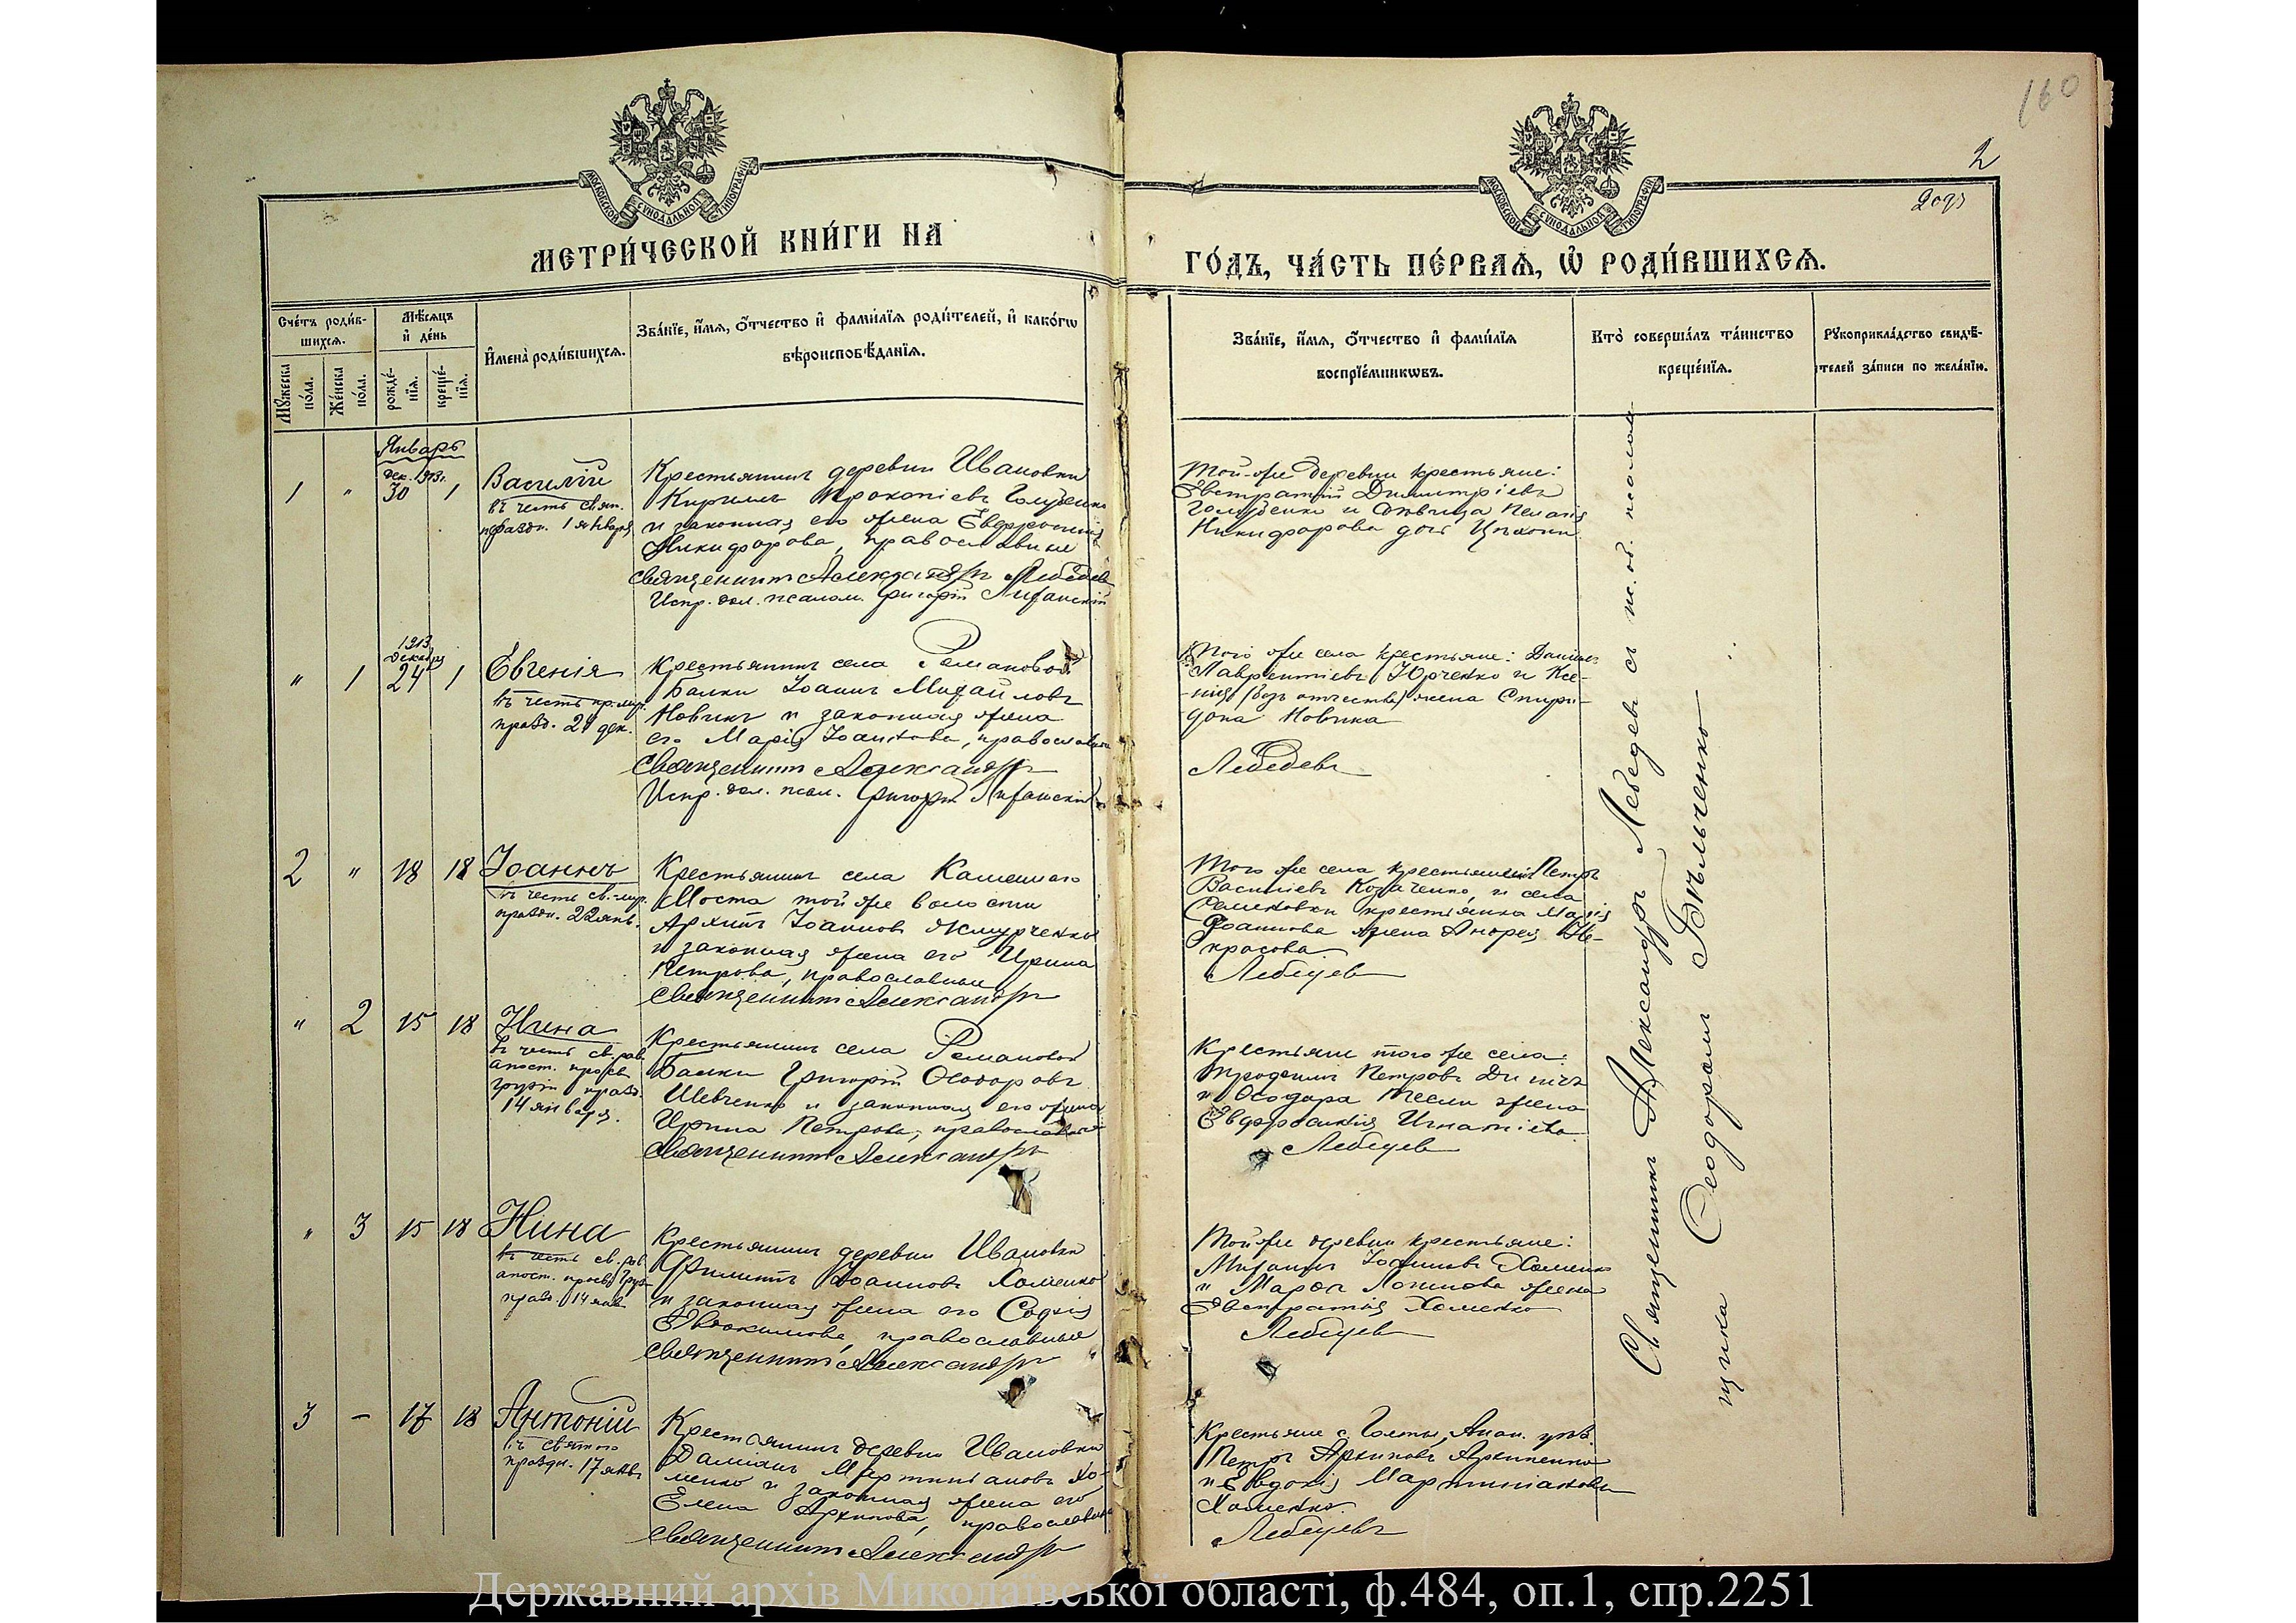 160
2
МОСКОВСКОЙ СѴНОДАЛЬНОЙ ТИПОГРАФІИ
МОСКОВСКОЙ СѴНОДАЛЬНОЙ ТИПОГРАФІИ
МЕТРИ́ЧЕСКОЙ КНИ́ГИ НА
ГО́ДЪ, ЧА́СТЬ ПЕ́РВАѦ, Ѽ РОДИ́ВШИХСѦ.
Счетъ роди́в-
шихсѧ.
Мꙋжеска по́ла.
Же́нска по́ла.
Мѣсѧцъ и де́нь
рожде́-
нїѧ.
креще́-
нїѧ.
Имена̀ роди́вшихсѧ.
Зва́нїе, и́мѧ, о́тчество и фами́лїѧ роди́телей, и како́гѡ
вѣроисповѣ́данїѧ.
Зва́нїе, и́мѧ, о́тчество и фами́лїѧ
воспрїе́мникѡвъ.
Кто̀ соверша́лъ та́инство
креще́нїѧ.
Рꙋкоприкла́дство свидѣ́-
телей за́писи по жела́нїю.
Январь
1 " дек. 1913г. 30 1 Василій
въ честь свят.
праздн. 1 января
Крестьянинъ деревни Ивановки
Кириллъ Прокопіевъ Голубенко
и законная его жена Евфросинія
Никифорова, православные
Священникъ Александръ Лебедев
Испр. дол. псалом. Григорій
Той-же деревни крестьяне:
Евстратій Димитріевъ
Голубенко и дѣвица Пелагія
Никифорова дочь
" 1 1913 декабря 24 1 Евгенія
въ честь пр. муч.
празд. 24 дек.
Крестьянинъ села Романовой
Балки Іоаннъ Михайловъ
Новикъ и законная жена
его Марія Іоаннова, православные
Священникъ Александръ
Испр. дол. псал. Григорій
Того же села крестьяне: Даніилъ
Лаврентіевъ Юрченко и Ксе-
нія (безъ отчества) жена Спири-
дона Новика
Лебедевъ
2 " 18 18 Іоаннъ
въ честь св. муч.
праздн. 22 янв.
Крестьянинъ села Каменнаго
Моста той же волости
Архипъ Іоанновъ
и законная жена его Ирина
Петрова, православные
Священникъ Александръ
Того же села крестьянинъ Петръ
Василіевъ Козаченко, и села
крестьянка Марія
Іоаннова жена Андрея Не-
красова
Лебедев
" 2 15 18 Нина
въ честь св. рав.
апост. просв.
Грузіи празд.
14 января.
Крестьянинъ села Романовой
Балки Григорій Ѳеодоровъ
Шевченко и законная его жена
Ирина Петрова, православные
Священникъ Александръ
Крестьяне того же села:
Трофимъ Петровъ
и Ѳеодора жена
Евфросинія Игнатіева
Лебедев
" 3 15 18 Нина
въ честь св. рав.
апост. просв. Груз.
празд. 14 янв.
Крестьянинъ деревни Ивановки
Филиппъ Іоанновъ Хоменко
и законная жена его Софія
Евдокимова, православные
Священникъ Александръ
Той же деревни крестьяне:
Михаилъ Іоанновъ Хоменко
и Марфа Логинова жена
Евстратія Хоменко
Лебедев
3 – 17 18 Антоній
въ святого
праздн. 17 янв.
Крестьянинъ деревни Ивановки
Даміанъ Мартиніановъ Хо-
менко и законная жена его
Елена Архипова, православные
Священникъ Александръ
Крестьяне с. Голты, Анан. уѣз.
Петръ Архиповъ Архипенко
и Евдокія Мартиніанова
Хоменко
Лебедевъ
Священникъ Александръ Лебедевъ съ ис. об. псалом-
щика Ѳеодоромъ Бѣльченко
Державний архів Миколаївської області, ф.484, оп.1, спр.2251